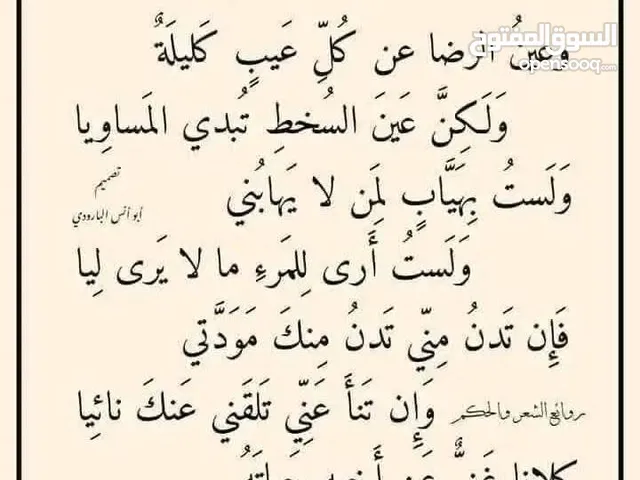 السوق المفتوح
opensooq.com
وَعَينُ الرضا عن كُلِّ عَيبٍ كَليلَةٌ
وَلَكِنَّ عَينَ السُخطِ تُبدي المَساوِيا
وَلَستُ بِهَيَّابٍ لِمَن لا يَهابُني
تصميم
أبو أنس البارودي
وَلَستُ أَرى لِلمَرءِ ما لا يَرى لِيا
فَإِن تَدنُ مِنّي تَدنُ مِنكَ مَوَدَّتي
وَإِن تَنأَ عَنِّي تَلقَني عَنكَ نائِيا
روائع الشعر والحكم
كلانا غَنِيٌّ عَن أَخيهِ حياتَهُ